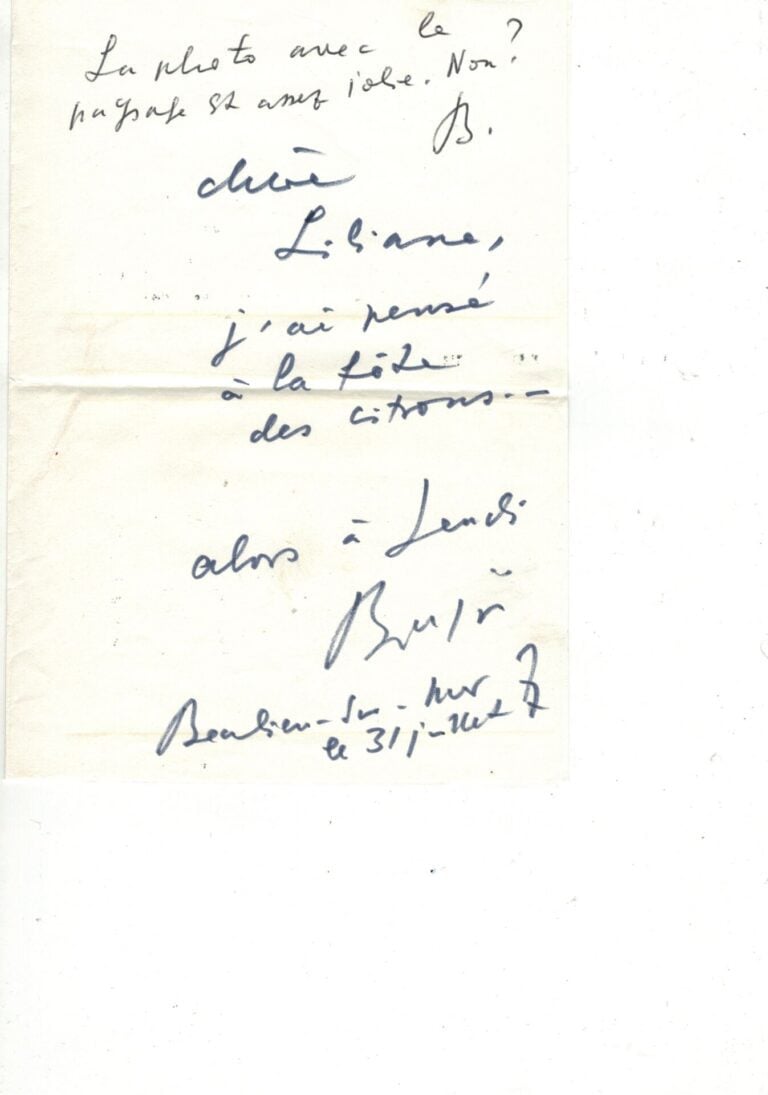 La photo avec le
paysage est assez jolie. Non?
B.
chère
Liliane,
j'ai pensé
à la fête
des citrons.-
alors à Lundi
Beaulieu-sur-mer
le 31 juillet